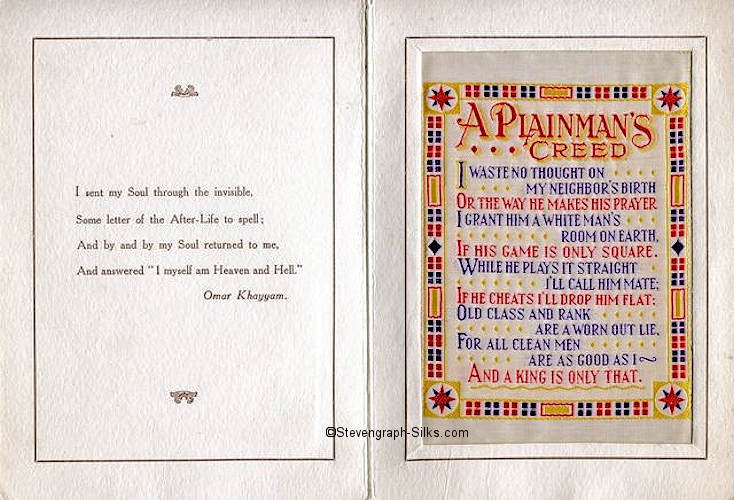 I sent my Soul through the invisible,
Some letter of the After-Life to spell;
And by and by my Soul returned to me,
And answered "I myself am Heaven and Hell."
Omar Khayyam.
A PLAINMAN'S
CREED
I WASTE NO THOUGHT ON
MY NEIGHBOR'S BIRTH
OR THE WAY HE MAKES HIS PRAYER
I GRANT HIM A WHITE MAN'S
ROOM ON EARTH,
IF HIS GAME IS ONLY SQUARE.
WHILE HE PLAYS IT STRAIGHT
I'LL CALL HIM MATE;
IF HE CHEATS I'LL DROP HIM FLAT:
OLD CLASS AND RANK
ARE A WORN OUT LIE,
FOR ALL CLEAN MEN
ARE AS GOOD AS I~
AND A KING IS ONLY THAT.
©Stevengraph-Silks.com